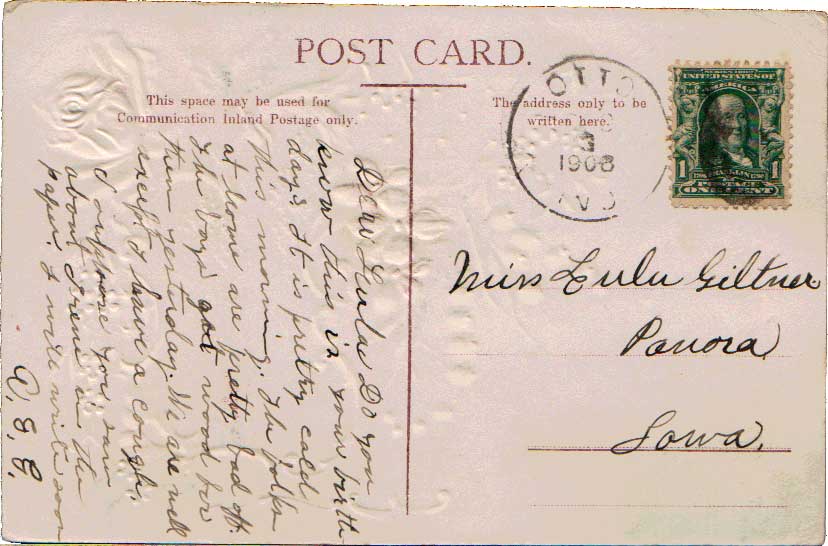 POST CARD.
This space may be used for
Communication Inland Postage only.
The address only to be
written here.
OTTO
3
1908
SERIES 1902
UNITED STATES OF
AMERICA
1 FRANKLIN 1
POSTAGE
ONE CENT
Miss Lulu Giltner
Panora
Iowa.
Dear Lulu Do you
know this is your birth
day? It is pretty cold
this morning. The folks
at home are pretty bad off.
The boys got wood for
them yesterday. We are well
except I have a cough.
I suppose you saw
about Irene in the
paper. I will write soon